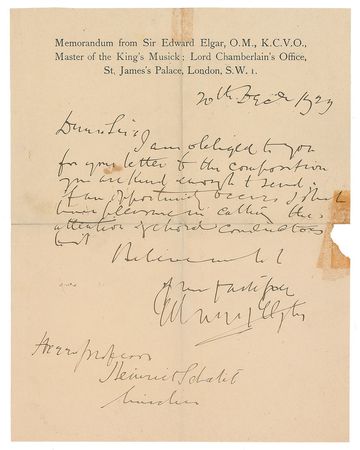 Memorandum from Sir Edward Elgar, O.M., K.C.V.O.,
Master of the King's Musick; Lord Chamberlain's Office,
St. James's Palace, London, S.W. 1.
20th Dec 1929
Dear Sir,
I am obliged to you
for your letter & the composition
you are kind enough to send.
If an opportunity occurs I shall
have pleasure in calling the
attention of choral conductors
to it
Believe me
Yours faithfully
Edward Elgar
Herrn Professor
Heinrich Schalit
München